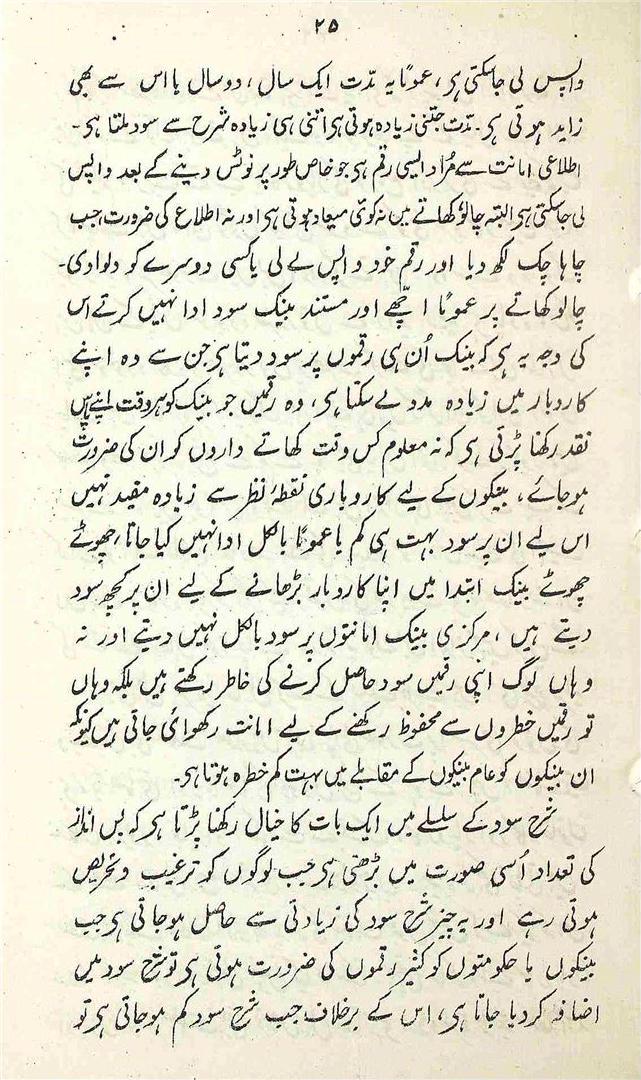 ۲۵
واپس لی جاسکتی ہی، عموماً یہ مدّت ایک سال، دو سال یا اس سے بھی
زاید ہوتی ہی۔ مدّت جتنی زیادہ ہوتی ہی اتنی ہی زیادہ شرح سے سود ملتا ہی۔
اطلاعی امانت سے مُراد ایسی رقم ہی جو خاص طور پر نوٹس دینے کے بعد واپس
لی جاسکتی ہی البتہ چالو کھاتے میں نہ کوئی میعاد ہوتی ہی اور نہ اطلاع کی ضرورت، جب
چاہا چک لکھ دیا اور رقم خود واپس لے لی یا کسی دوسرے کو دلوادی۔
چالو کھاتے پر عموماً اچھّے اور مستند بینک سود ادا نہیں کرتے اس
کی وجہ یہ ہی کہ بینک اُن ہی رقموں پر سود دیتا ہی جن سے وہ اپنے
کاروبار میں زیادہ مدد لے سکتا ہی، وہ رقمیں جو بینک کو ہر وقت اپنے پاس
نقد رکھنا پڑتی ہی کہ نہ معلوم کس وقت کھاتے داروں کو ان کی ضرورت
ہوجائے، بینکوں کے لیے کاروباری نقطۂ نظر سے زیادہ مفید نہیں
اس لیے ان پر سود بہت ہی کم یا عموماً بالکل ادا نہیں کیا جاتا، چھوٹے
چھوٹے بینک ابتدا میں اپنا کاروبار بڑھانے کے لیے ان پر کچھ سود
دیتے ہیں، مرکزی بینک امانتوں پر سود بالکل نہیں دیتے اور نہ
وہاں لوگ اپنی رقمیں سود حاصل کرنے کی خاطر رکھتے ہیں بلکہ وہاں
تو رقمیں خطروں سے محفوظ رکھنے کے لیے امانت رکھوائی جاتی ہیں کیونکہ
ان بینکوں کو عام بینکوں کے مقابلے میں بہت کم خطرہ ہوتا ہی۔
شرح سود کے سلسلے میں ایک بات کا خیال رکھنا پڑتا ہی کہ پس انداز
کی تعداد اُسی صورت میں بڑھتی ہی جب لوگوں کو ترغیب و تحریص
ہوتی رہے اور یہ چیز شرح سود کی زیادتی سے حاصل ہوجاتی ہی جب
بینکوں یا حکومتوں کو کثیر رقموں کی ضرورت ہوتی ہی تو شرح سود میں
اضافہ کردیا جاتا ہی، اس کے برخلاف جب شرح سود کم ہوجاتی ہی تو